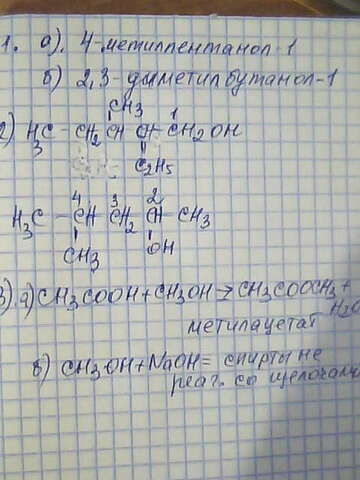 1. а). 4-метилпентанол-1
б) 2,3-диметилбутанол-1
CH3
2) H3C - CH2 CH CH - CH2OH
1
C2H5
4 3 2
H3C - CH CH2 CH - CH3
CH3 OH
3). а) CH3COOH + CH3OH → CH3COOCH3 + H2O
метилацетат
б) CH3OH + NaOH = спирты не
реаг. со щелочами